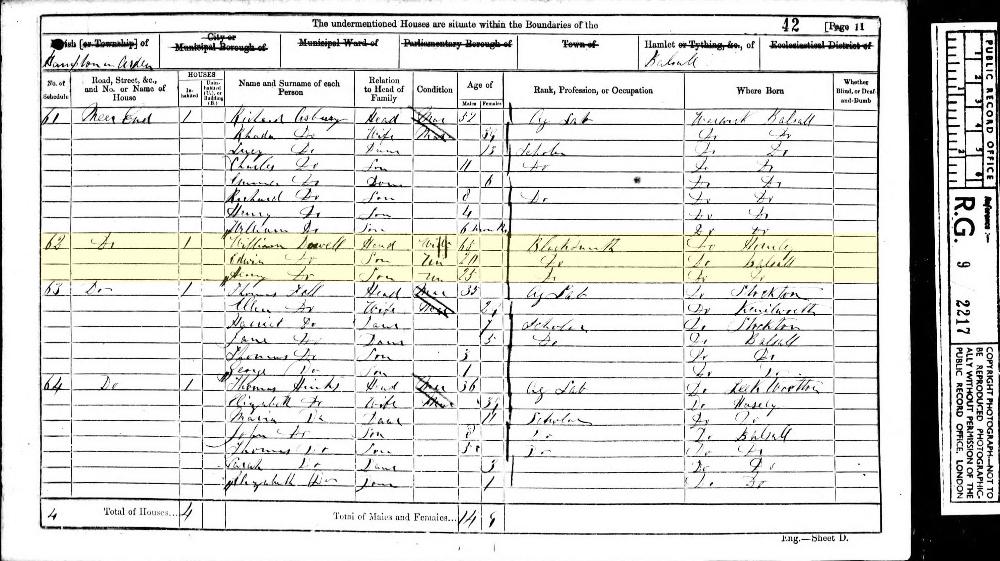 The undermentioned Houses are situate within the Boundaries of the
42 [Page 11
Parish [or Township] of
City or Municipal Borough of
Municipal Ward of
Parliamentary Borough of
Town of
Hamlet or Tything, &c., of
Ecclesiastical District of
Hampton in Arden
Balsall
No. of Schedule
Road, Street, &c., and No. or Name of House
HOUSES
Inhabited
Uninhabited (U.), or Building (B.)
Name and Surname of each Person
Relation to Head of Family
Condition
Age of
Males
Females
Rank, Profession, or Occupation
Where Born
Whether Blind, or Deaf-and-Dumb
61 Meer End 1 Richard Head Mar Ag Lab Warwick Balsall
Rhoda Do Wife Mar Do Do
Lucy Do Daur 13 Scholar Do Do
Charles Do Son 11 Do Do Do
Do Daur 6 Do Do
Richard Do Son 8 Do Do Do
Henry Do Son 4 Do Do
William Do Son 6 Do Do
62 Do 1 William Head Blacksmith Do
Edwin Do Son Un 20 Do Do Balsall
Do Son Un 25 Do Do Do
63 Do 1 Thomas Head Mar 35 Ag Lab Do Stockton
Ellen Do Wife Mar Do Kenilworth
Harriet Do Daur 7 Scholar Do Stockton
Jane Do Daur 5 Do Do Balsall
Thomas Do Son 3 Do Do
George Do Son 1 Do Do
64 Do 1 Thomas Hinks Head Mar 36 Ag Lab Do Leek Wootton
Elizabeth Do Wife Mar Do
Maria Do Daur 11 Scholar Do Do
John Do Son 8 Do Do Balsall
Thomas Do Son Do Do Do
Sarah Do Daur 3 Do Do
Elizabeth Do 1 Do Do
4 Total of Houses... 4 Total of Males and Females... 14
Eng.—Sheet D.
PUBLIC RECORD OFFICE
Reference :-
R.G. 9 / 2217
COPYRIGHT PHOTOGRAPH—NOT TO
BE REPRODUCED PHOTOGRAPHIC-
ALLY WITHOUT PERMISSION OF THE
PUBLIC RECORD OFFICE, LONDON